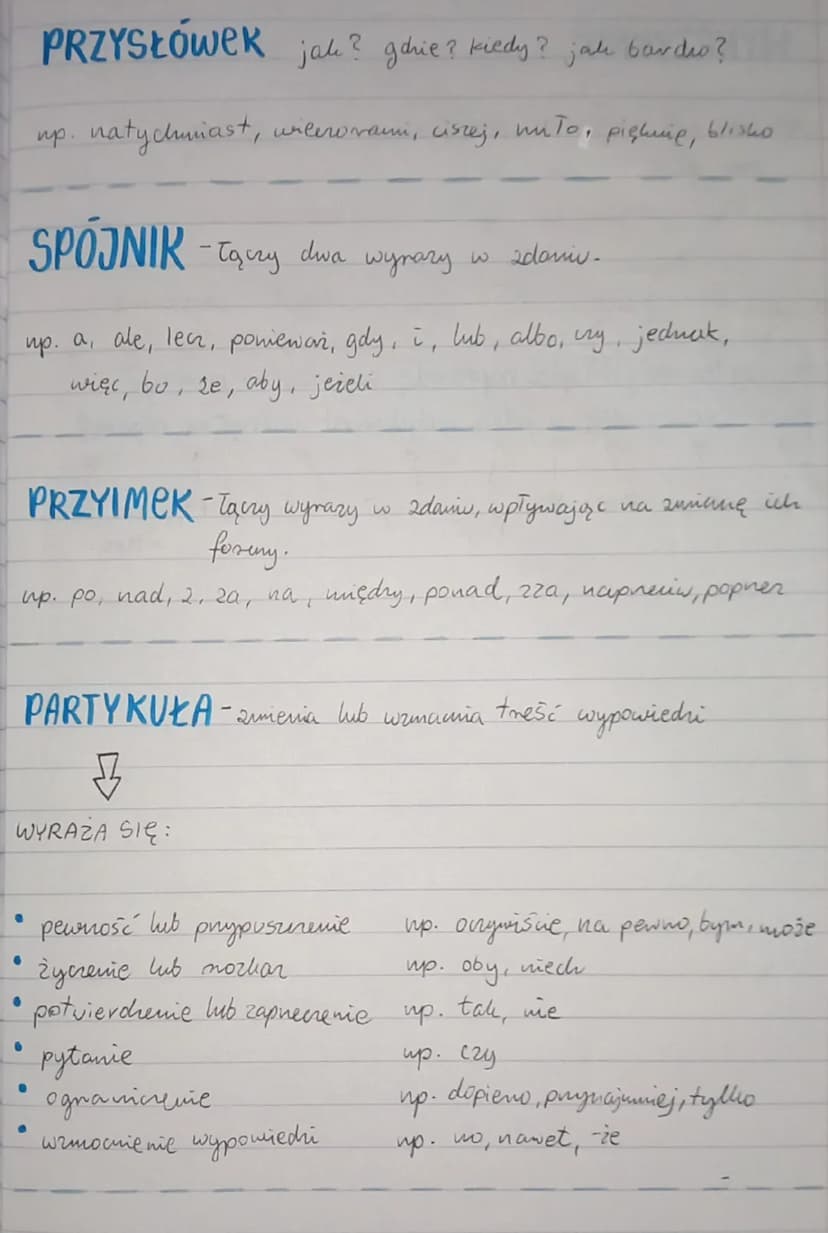 PRZYSŁÓWEK jak? gdzie? kiedy? jak bardzo?
np. natychmiast, wieczorami, ciszej, miło, pięknie, blisko
SPÓJNIK - łączy dwa wyrazy w zdaniu.
np. a, ale, lecz, ponieważ, gdy, i, lub, albo, czy, jednak,
więc, bo, że, aby, jeżeli
PRZYIMEK - łączy wyrazy w zdaniu, wpływając na zmianę ich
formy.
np. po, nad, z, za, na, między, ponad, zza, naprzeciw, poprzez
PARTYKUŁA - zmienia lub wzmacnia treść wypowiedzi
WYRAŻA SIĘ:
• pewność lub przypuszczenie np. oczywiście, na pewno, bym, może
• życzenie lub rozkaz np. oby, niech
• potwierdzenie lub zaprzeczenie np. tak, nie
• pytanie np. czy
• ograniczenie np. dopiero, przynajmniej, tylko
• wzmocnienie wypowiedzi np. no, nawet, -że